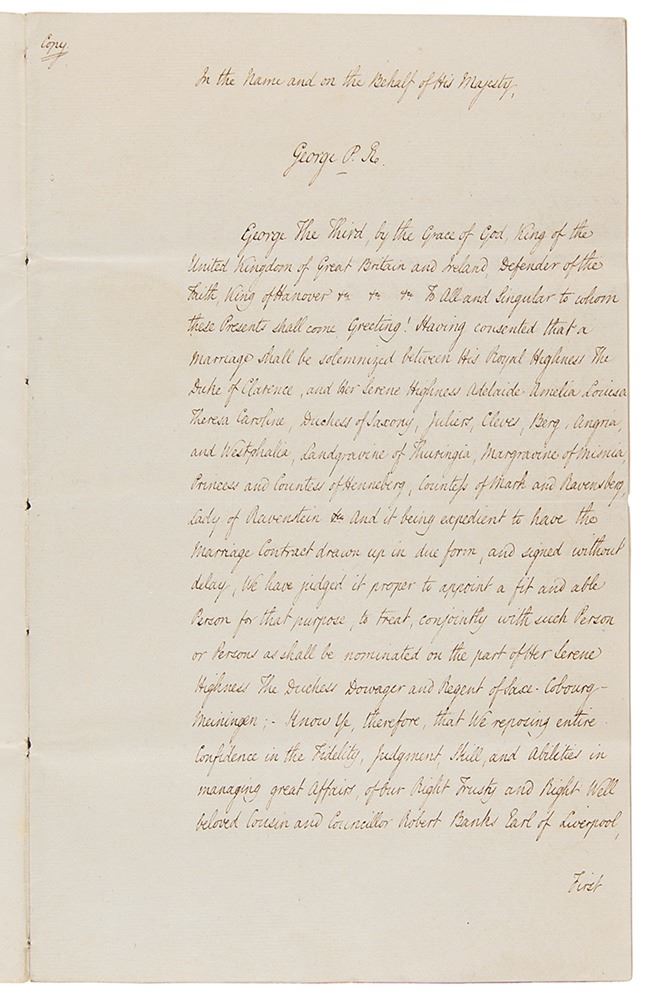 Copy
In the Name and on the Behalf of His Majesty,
George P. R.
George The Third, by the Grace of God, King of the
United Kingdom of Great Britain and Ireland, Defender of the
Faith, King of Hanover &c &c &c To All and Singular to whom
these Presents shall come Greeting! Having consented that a
Marriage shall be solemnized between His Royal Highness The
Duke of Clarence, and Her Serene Highness Adelaide Amelia Louisa
Theresa Caroline, Duchess of Saxony, Juliers, Cleves, Berg, Angria,
and Westphalia, Landgravine of Thuringia, Margravine of Misnia,
Princess and Countess of Henneberg, Countess of Mark and Ravensberg,
Lady of Ravenstein &c And it being expedient to have the
Marriage Contract drawn up in due form, and signed without
delay, We have judged it proper to appoint a fit and able
Person for that purpose, to treat, conjointly with such Person
or Persons as shall be nominated on the part of Her Serene
Highness The Duchess Dowager and Regent of Saxe-Cobourg-
Meiningen;- Know Ye, therefore, that We reposing entire
Confidence in the Fidelity, Judgment, Skill, and Abilities in
managing great Affairs, of our Right Trusty and Right Well
beloved Cousin and Councillor Robert Banks Earl of Liverpool,
First